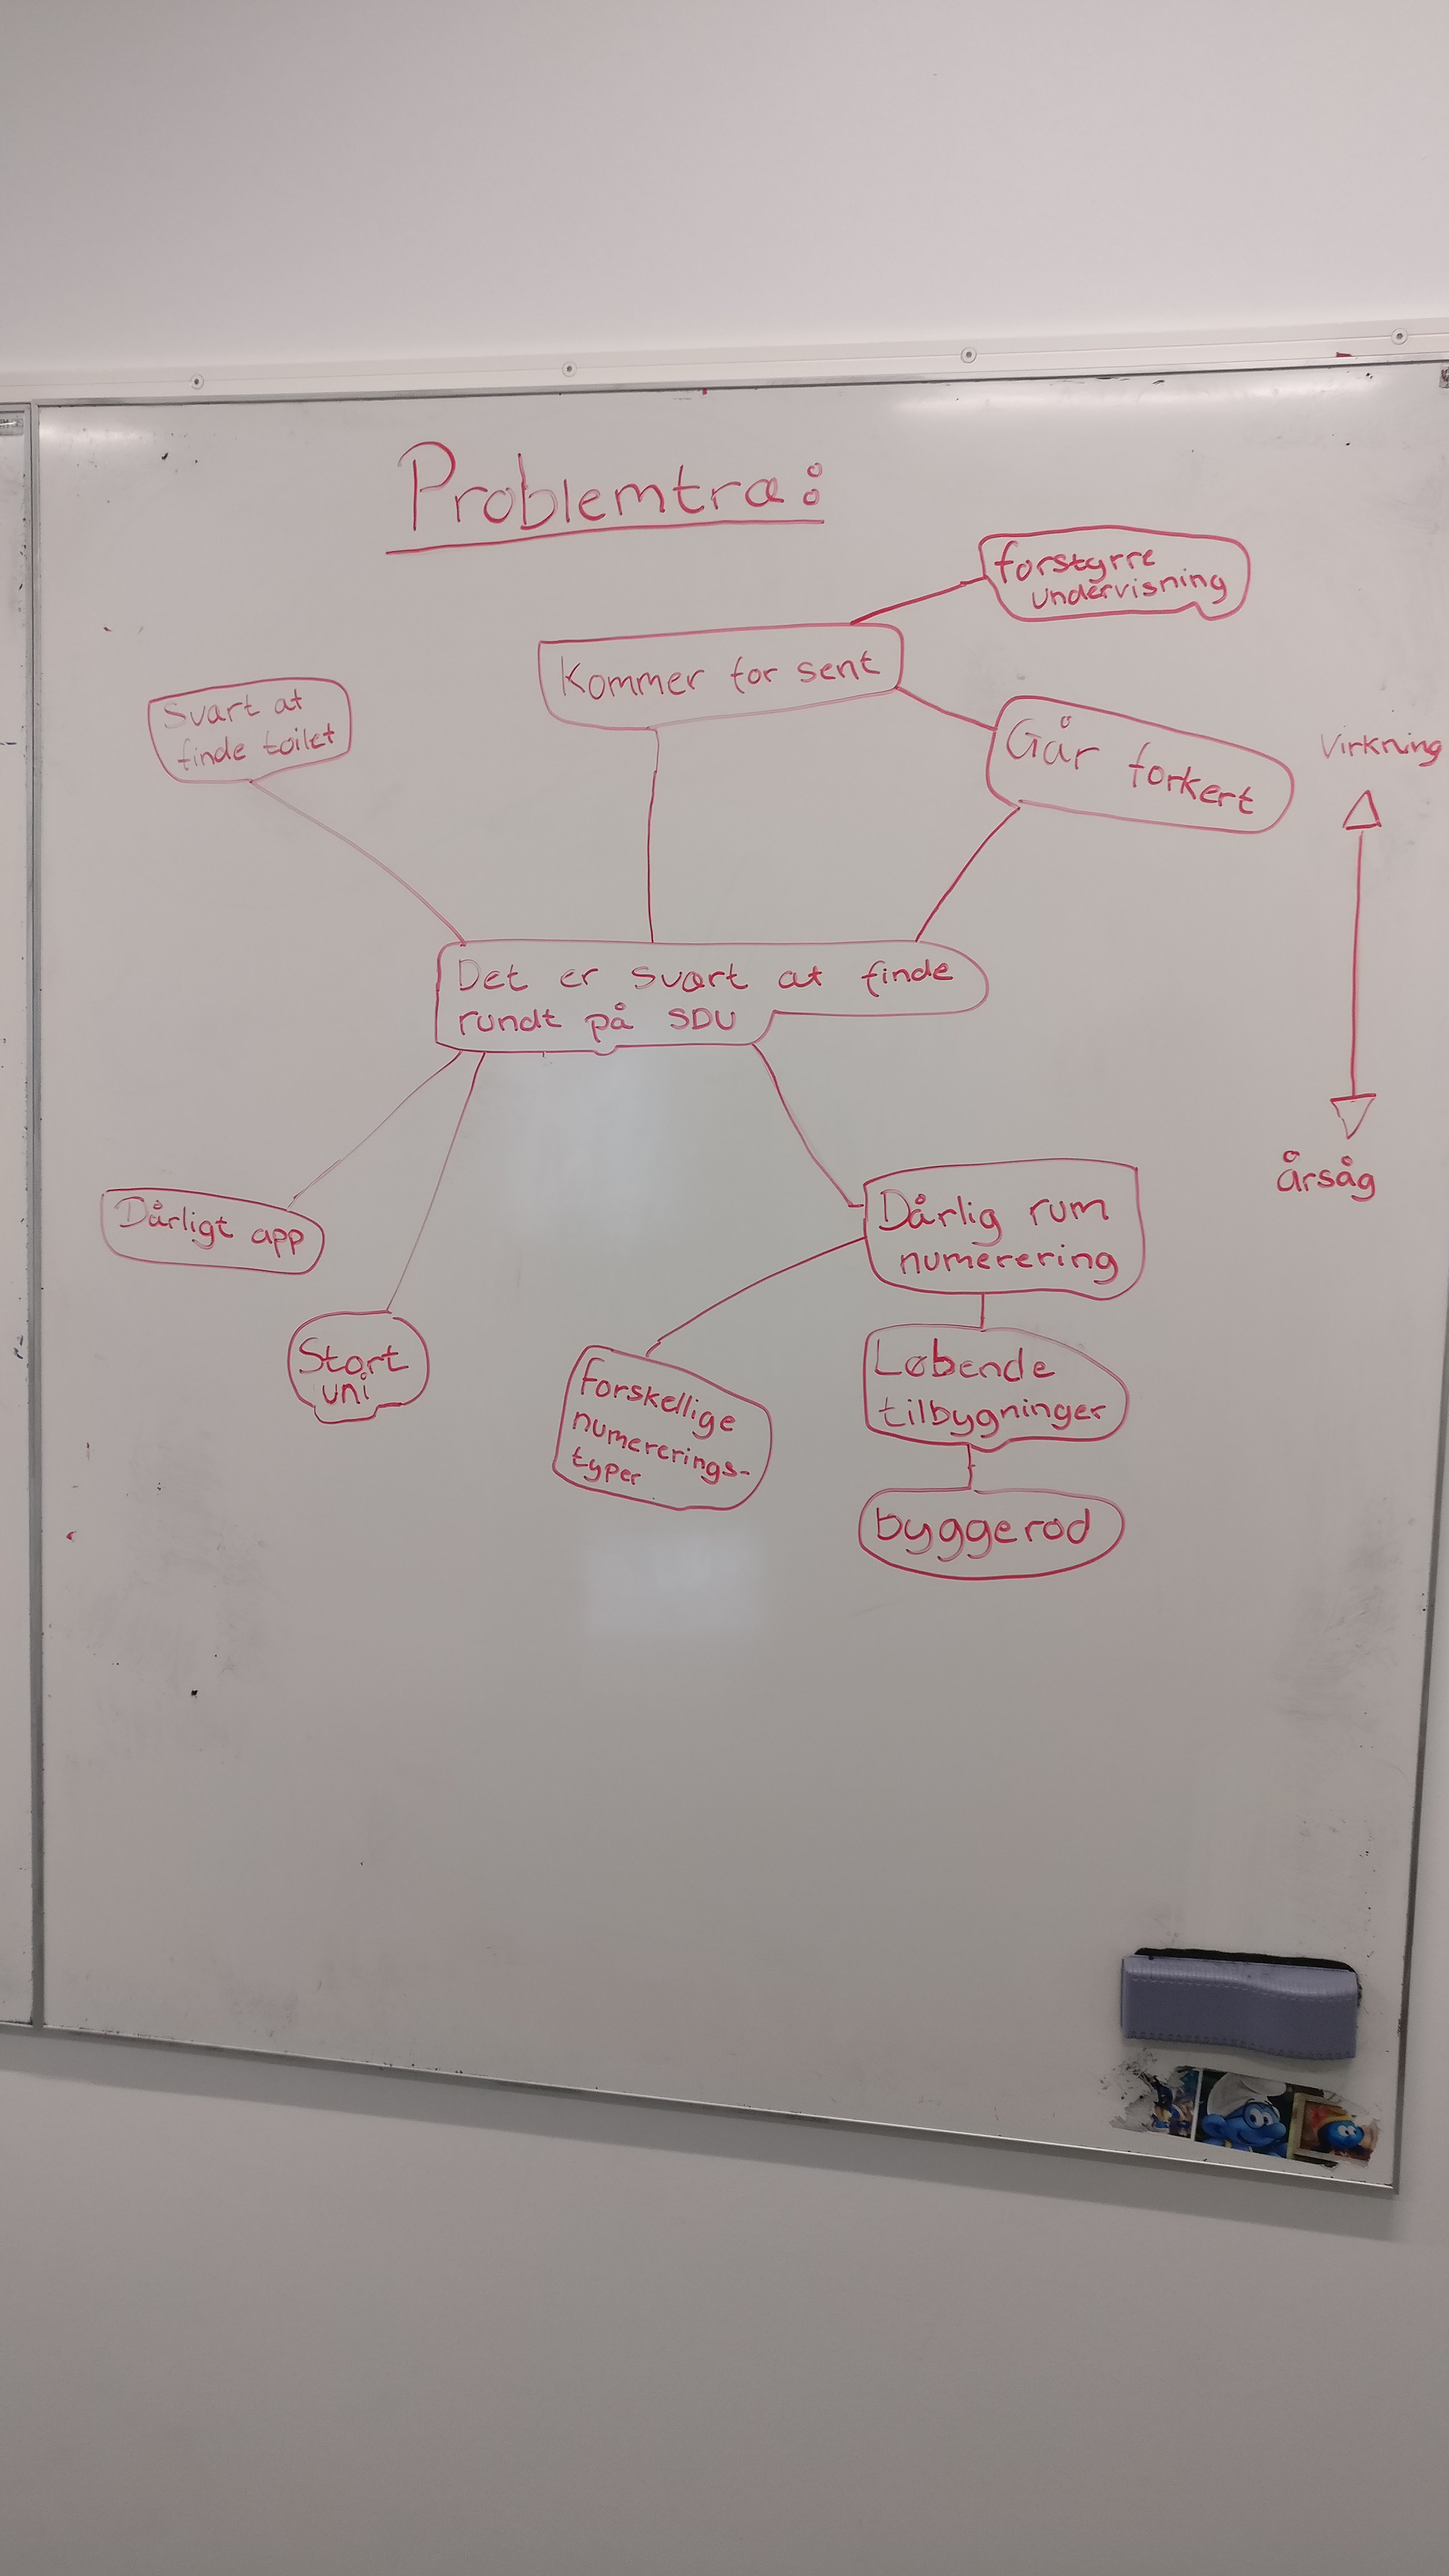 Problemtræ:
forstyrre
undervisning
Kommer for sent
Svært at
finde toilet
Går forkert
Virkning
Det er svært at finde
rundt på SDU
årsåg
Dårligt app
Dårlig rum
numerering
Stort
uni
Forskellige
numererings-
typer
Løbende
tilbygninger
byggerod